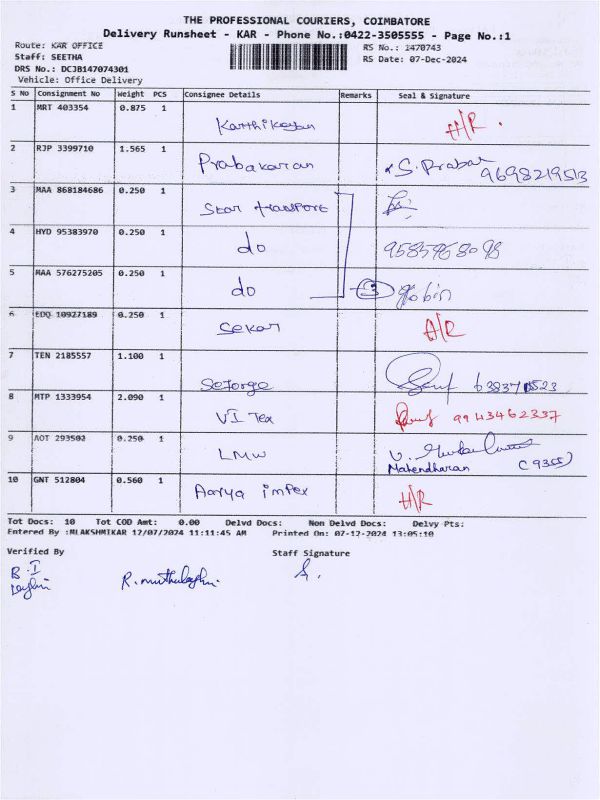 THE PROFESSIONAL COURIERS, COIMBATORE
Delivery Runsheet - KAR - Phone No.:0422-3505555 - Page No.:1
Route: KAR OFFICE RS No.: 1470743
Staff: SEETHA RS Date: 07-Dec-2024
DRS No.: DCJB147074301
Vehicle: Office Delivery
S No Consignment No Weight PCS Consignee Details Remarks Seal & Signature
1 MRT 403354 0.875 1 Karthikeyan A/R.
2 RJP 3399710 1.565 1 Prabakaran S. Prabak 9698219513
3 MAA 868184686 0.250 1 Star transport
4 HYD 95383970 0.250 1 do 9585968098
5 MAA 576275205 0.250 1 do 3 Gobin
6 EDQ 10927189 0.250 1 Sekar A/R
7 TEN 2185557 1.100 1 Seforge
8 MTP 1333954 2.090 1 VI Tex 9943462337
9 AOT 293502 0.250 1 LMW Mahendharan (9355)
10 GNT 512804 0.560 1 Aarya impex A/R
Tot Docs: 10 Tot COD Amt: 0.00 Delvd Docs: Non Delvd Docs: Delvy Pts:
Entered By :MLAKSHMIKAR 12/07/2024 11:11:45 AM Printed On: 07-12-2024 13:05:10
Verified By Staff Signature
R. muthulakshmi S.